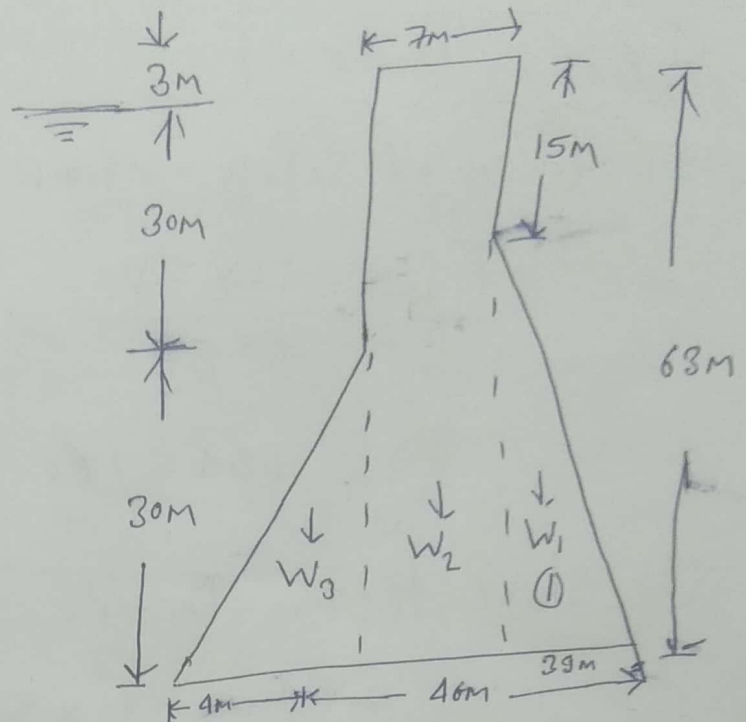 7M
3M
15M
30M
63M
30M
W₃
W₂
W₁
①
39m
4M
46M